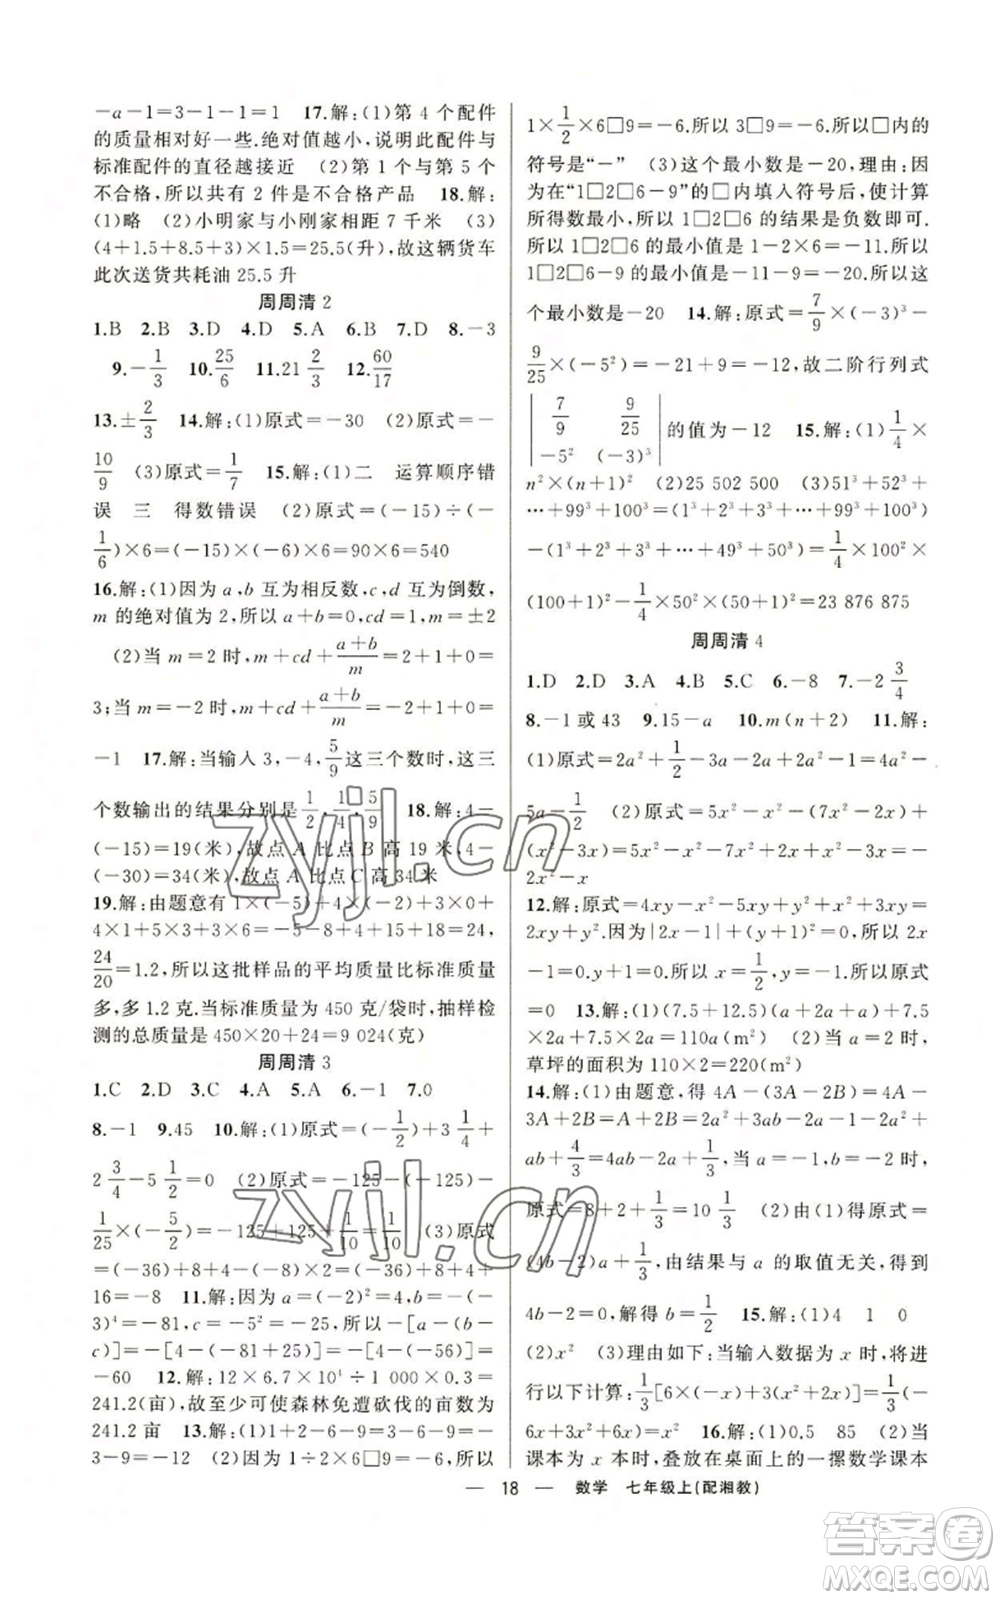 -a-1=3-1-1=1　17.解:(1)第 4 个配件
的质量相对好一些.绝对值越小,说明此配件与
标准配件的直径越接近　(2)第 1 个与第 5 个
不合格,所以共有 2 件是不合格产品　18.解:
(1)略　(2)小明家与小刚家相距 7 千米　(3)
(4+1.5+8.5+3)×1.5=25.5(升),故这辆货车
此次送货共耗油 25.5 升
周周清 2
1.B　2.B　3.D　4.D　5.A　6.B　7.D　8.-3
9.-1/3　10.25/6　11.21 2/3　12.60/17
13.±2/3　14.解:(1)原式=-30　(2)原式=-
10/9　(3)原式=1/7　15.解:(1)二　运算顺序错
误　三　得数错误　(2)原式=(-15)÷(-
1/6)×6=(-15)×(-6)×6=90×6=540
16.解:(1)因为 a,b 互为相反数,c,d 互为倒数,
m 的绝对值为 2,所以 a+b=0,cd=1,m=±2
(2)当 m=2 时,m+cd+(a+b)/m=2+1+0=
3;当 m=-2 时,m+cd+(a+b)/m=-2+1+0=
-1　17.解:当输入 3,-4,5/9这三个数时,这三
个数输出的结果分别是1/2,1/4,5/9　18.解:4-
(-15)=19(米),故点 A 比点 B 高 19 米,4-
(-30)=34(米),故点 A 比点 C 高 34 米
19.解:由题意有 1×(-5)+4×(-2)+3×0+
4×1+5×3+3×6=-5-8+4+15+18=24,
24/20=1.2,所以这批样品的平均质量比标准质量
多,多 1.2 克.当标准质量为 450 克/袋时,抽样检
测的总质量是 450×20+24=9 024(克)
周周清 3
1.C　2.D　3.C　4.A　5.A　6.-1　7.0
8.-1　9.45　10.解:(1)原式=(-1/2)+3 1/4+
2 3/4-5 1/2=0　(2)原式=-125-(-125)+
1/25×(-5/2)=-125+125+1/10=1/10　(3)原式
=(-36)+8+4=(-36)+8+4=(-36)+8+4
16=-8　11.解:因为 a=(-2)²=4,b=(-
3)⁴=-81,c=-5²=-25,所以-[a-(b-
c)]=-[4-(-81+25)]=-[4-(-56)]=
-60　12.解:12×6.7×10⁴÷1 000×0.3=
241.2(亩),故至少可使森林免遭砍伐的亩数为
241.2 亩　13.解:(1)1+2-6-9=3-6-9=
-3-9=-12　(2)因为 1÷2×6□9=-6,所以
1×1/2×6□9=-6.所以 3□9=-6,所以□内的
符号是“-”　(3)这个最小数是-20,理由:因
为在“1□2□6-9”的□内填入符号后,使计算
所得数最小,所以 1□2□6 的结果是负数即可.
所以 1□2□6 的最小值是 1-2×6=-11.所以
1□2□6-9 的最小值是-11-9=-20,所以这
个最小数是-20　14.解:原式=7/9×(-3)³-
9/25×(-5²)=-21+9=-12,故二阶行列式
| 7/9　9/25 |
| -5²　(-3)³ | 的值为-12　15.解:(1)1/4×
n²×(n+1)²　(2)25 502 500　(3)51³+52³+
…+99³+100³=(1³+2³+3³+…+99³+100³)
-(1³+2³+3³+…+49³+50³)=1/4×100²×
(100+1)²-1/4×50²×(50+1)²=23 876 875
周周清 4
1.D　2.D　3.A　4.B　5.C　6.-8　7.-2 3/4
8.-1 或 43　9.15-a　10.m(n+2)　11.解:
(1)原式=2a²+1/2-3a-1-2a+5-2a²=
5a-1/2　(2)原式=5x²-x²-(7x²-2x)+
(x²-3x)=5x²-x²-7x²+2x+x²-3x=-
2x²-x
12.解:原式=4xy-x²-5xy+y²+x²+3xy=
2xy+y².因为|2x-1|+(y+1)²=0,所以 2x
-1=0,y+1=0.所以 x=1/2,y=-1.所以原式
=0　13.解:(1)(7.5+12.5)(a+2a+a)+7.5
×2a+7.5×2a=110a(m²)　(2)当 a=2 时,
草坪的面积为 110×2=220(m²)
14.解:(1)由题意,得 4A-(3A-2B)=4A-
3A+2B=A+2B=2a²+3ab-2a-1-2a²+
ab+4/3=4ab-2a+1/3,当 a=-1,b=-2 时,
原式=8+2+1/3=10 1/3　(2)由(1)得原式=
(4b-2)a+1/3,由结果与 a 的取值无关,所以
4b-2=0,解得 b=1/2　15.解:(1)4　1　0
(2)x²　(3)理由如下:当输入数据为 x 时,将进
行以下计算:1/3[6×(-x)+3(x²+2x)]=1/3(-
6x+3x²+6x)=x²　16.解:(1)0.5　85　(2)当
课本为 x 本时,叠放在桌面上的一摞数学课本
— 18 —　数学　七年级上(配湘教)
zyjl.cn
zyjl.cn
答案圈
MXQE.COM